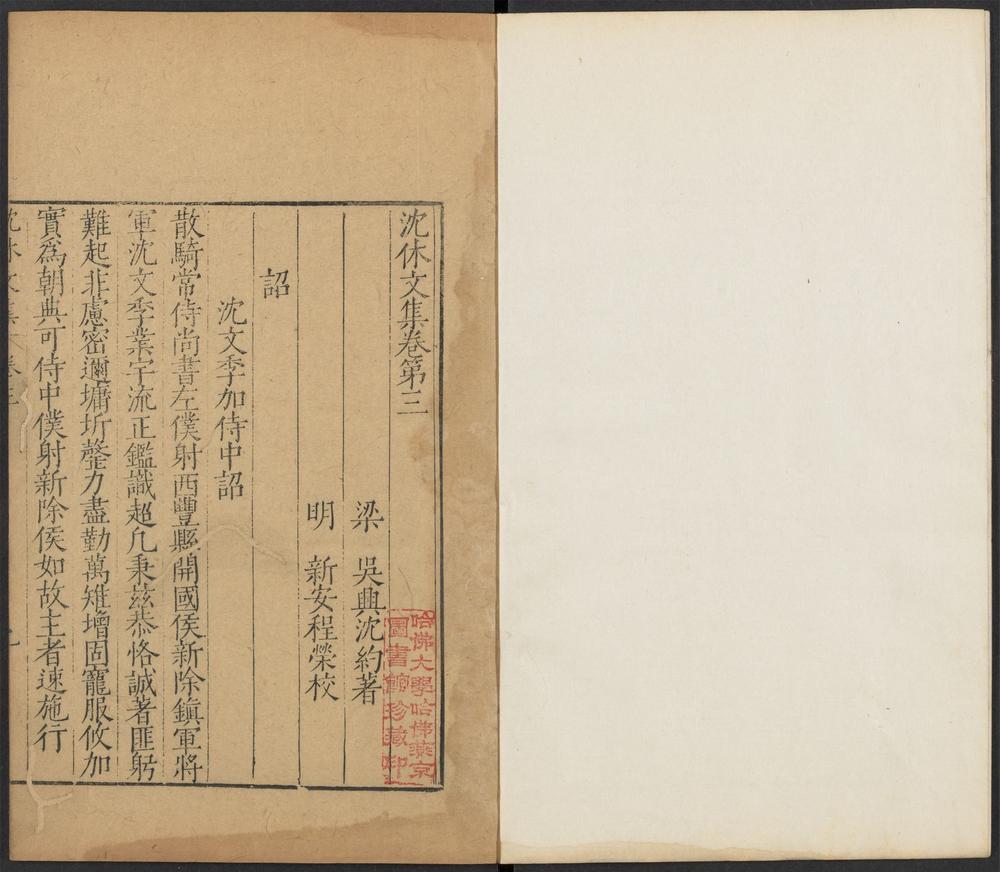 沈休文集卷第三
梁　吳興沈約著
明　新安程榮校
詔
沈文季加侍中詔
散騎常侍尚書左僕射西豐縣開國侯新除鎮軍將
軍沈文季業宇流正鑑識超凡秉茲恭恪誠著匪躬
難起非慮密邇墉圻罄力盡勤萬雉增固寵服攸加
實為朝典可侍中僕射新除侯如故主者速施行
沈休文集 卷三
哈佛大學哈佛燕京
圖書館珍藏印